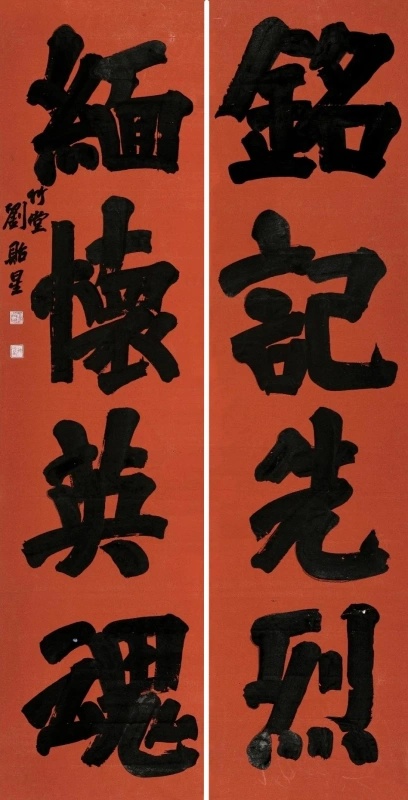 銘記先烈
緬懷英魂
竹堂
劉貽星